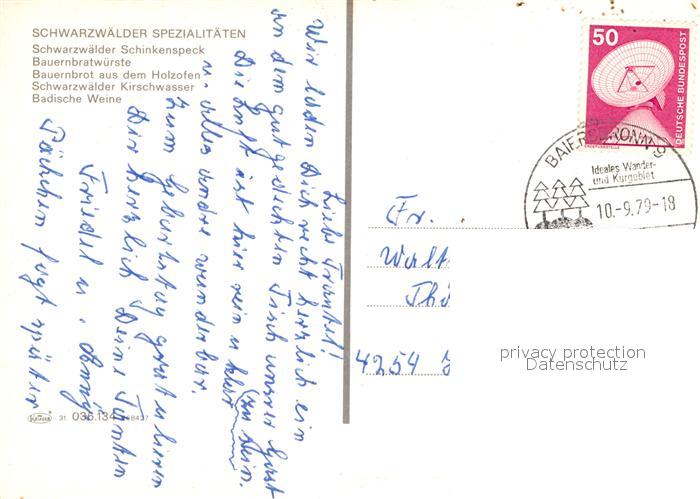 SCHWARZWÄLDER SPEZIALITÄTEN
Schwarzwälder Schinkenspeck
Bauernbratwürste
Bauernbrot aus dem Holzofen
Schwarzwälder Kirschwasser
Badische Weine
Liebe Trautel!
Wir laden Dich recht herzlich ein
an dem gut gedeckten Tisch unser Gast
zu sein.
Die Luft ist hier rein u klar
u. alles andre wunderbar.
Zum Geburtstag gratulieren
Dir herzlich Deine Tanten
Friedel u. Anny
Päckchen folgt später
31. 036.134
50
DEUTSCHE BUNDESPOST
BAIERSBRONN
Ideales Wander-
und Kurgebiet
10.-9.79-18
Fr.
Walt
4254
privacy protection
Datenschutz